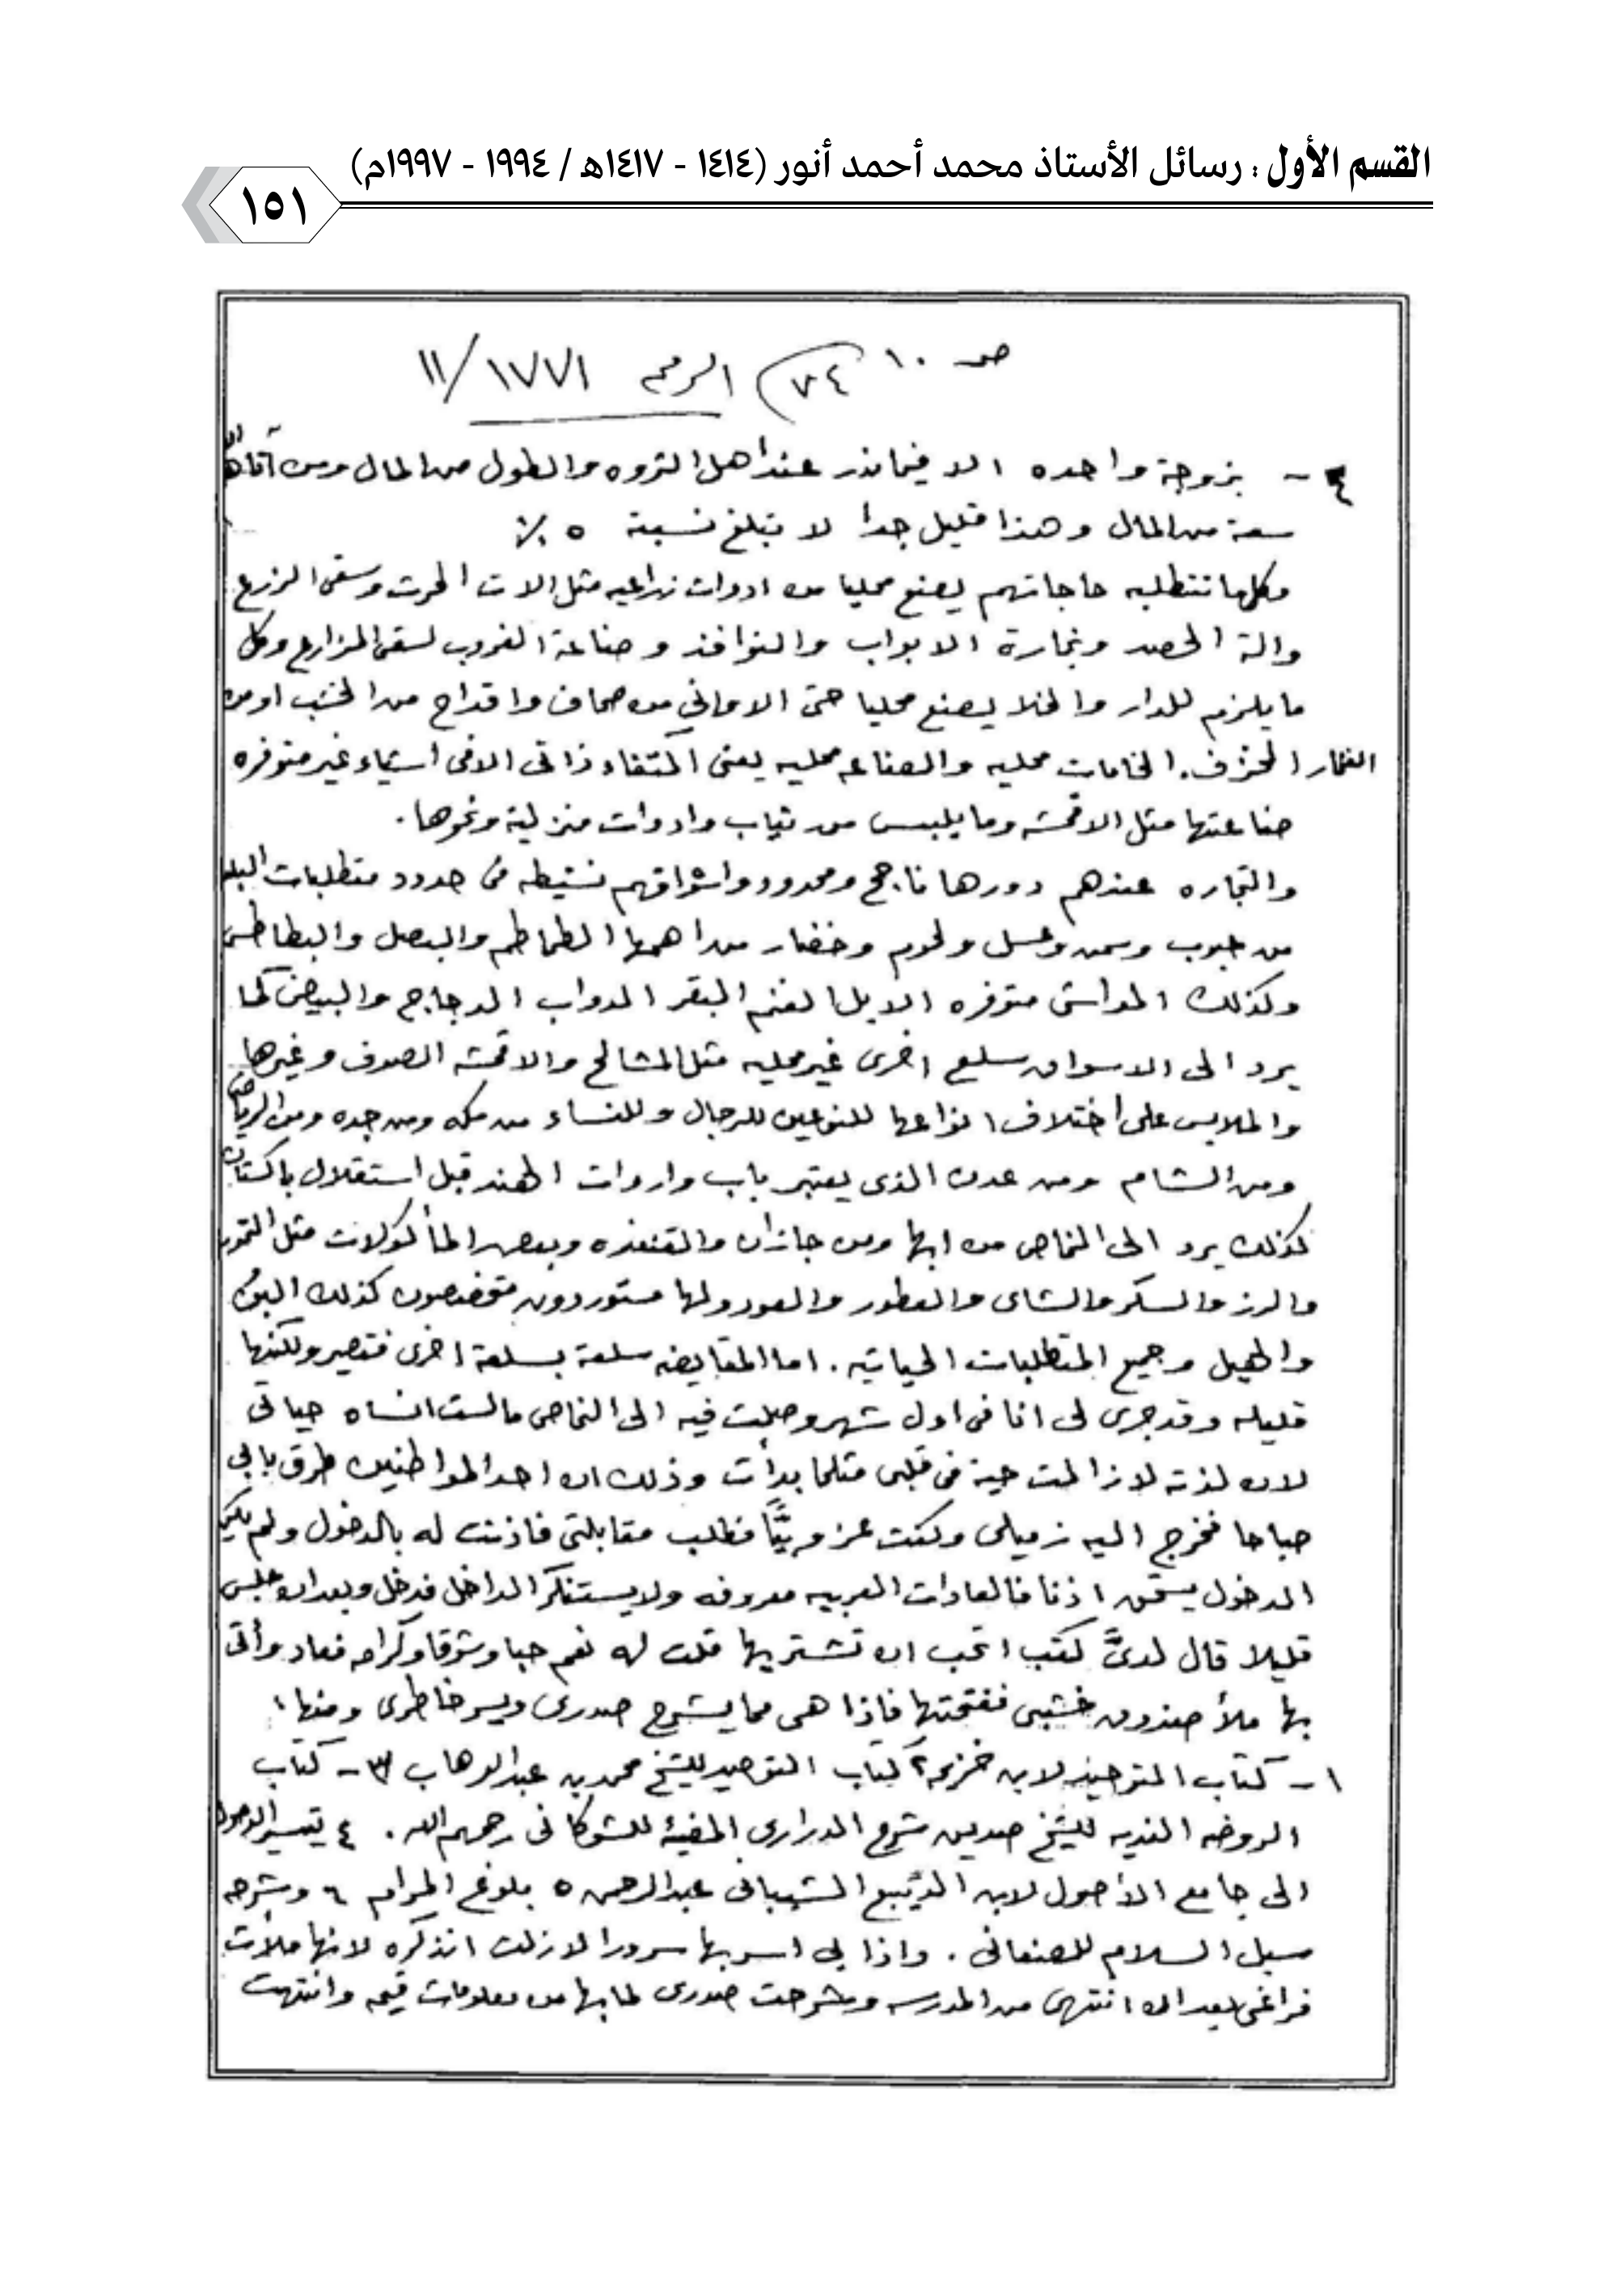 القسم الأول : رسائل الأستاذ محمد أحمد أنور (١٤١٤ - ١٤١٧هـ / ١٩٩٤ - ١٩٩٧م)
١٥١
صـ ١٠ (٧٤ الرمز ١٧٧١/١١
٤ - بزوجة واحده الا فيما ندر عند اهل الثروه والطول من المال ومن آتاه الله
سعة من المال وهذا قليل جدا لا تبلغ نسبة ٥٪
وكلما تتطلبه حاجاتهم يصنع محليا من ادوات زراعيه مثل الات الحرث وسقى الزرع
والة الحصد ونجارة الابواب والنوافذ وصناعة الغروب لسقى المزارع وكل
ما يلزم للدار والخلا يصنع محليا حتى الاواني من صحاف واقداح من الخشب او من
الفخار الخزف. الخامات محليه والصناعه محليه يعنى اكتفاء ذاتى الا فى اشياء غير متوفره
صناعتها مثل الاقمشه وما يلبس من ثياب وادوات منزلية ونحوها.
والتجاره عندهم دورها ناجح ومحدود واسواقهم نشيطه فى حدود متطلبات البلد
من حبوب وسمن وعسل ولحوم وخضار من اهمها الطماطم والبصل والبطاطس
وكذلك المواشى متوفره الابل الغنم البقر الدواب الدجاج والبيض كما
يرد الى الاسواق سلع اخرى غير محليه مثل المشالح والاقمشه الصوف وغيرها
والملابس على اختلاف انواعها للنوعين للرجال وللنساء من مكه ومن جده ومن الرياض
ومن الشام ومن عدن الذى يعتبر باب واردات الهند قبل استقلال باكستان
كذلك يرد الى النماص من ابها ومن جازان والقنفذه وبعض المأكولات مثل التمور
والرز والسكر والشاى والعطور والعود ولها مستوردون متخصصون كذلك البن
والهيل وجميع المتطلبات الحياتيه. اما المقايضه سلعة بسلعة اخرى فتصير ولكنها
قليله وقد جرى لى انا فى اول شهر وصلت فيه الى النماص مالست انساه حياتى
لان لذته لا زالت حية فى قلبى مثلما بدأت وذلك ان احد المواطنين طرق بابي
صباحا فخرج اليه زميلى وكنت عزوبيًّا فطلب مقابلتى فاذنت له بالدخول ولم يكن
الدخول يستحق اذنا فالعادات العربيه معروفه ولا يستنكر الداخل فدخل وبعد ان جلس
قليلا قال لدىَّ كتب اتحب ان تشتريها قلت له نعم حبا وشوقا وكرامه فعاد وأتى
بها ملأ صندوق خشبى ففتحتها فاذا هى مما يشرح صدرى ويسر خاطرى ومنها:
١ - كتاب التوحيد لابن خزيمه ٢ كتاب التوحيد للشيخ محمد بن عبد الوهاب ٣ - كتاب
الروضه النديه للشيخ صديق شرح الدرارى المضيئه للشوكانى رحمهم الله. ٤ تيسير الوصول
الى جامع الأصول لابن الدَّيبع الشيبانى عبد الرحمن ٥ بلوغ المرام ٦ وشرحه
سبل السلام للصنعانى. واذا بى اسر بها سرورا لا زلت اتذكره لانها ملأت
فراغى بعد ان انتهى من المدرسه وشرحت صدرى لما بها من معلومات قيمه وانتهت